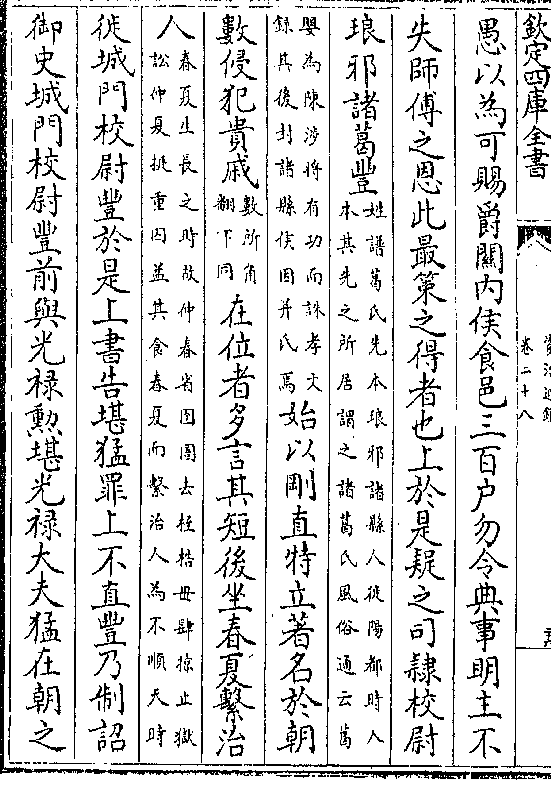 欽定四庫全書
資治通鑑
卷二十八
愚以為可賜爵關内侯食邑三百户勿令典事明主不
失師傅之恩此最策之得者也上於是疑之司隸校尉
琅邪諸葛豐姓譜葛氏先本琅邪諸縣人徙陽都時人本其先之所居謂之諸葛氏風俗通云葛
嬰為陳涉將有功而誅孝文録其後封諸縣侯因并氏焉始以剛直特立著名於朝
數侵犯貴戚數所角翻下同在位者多言其短後坐春夏繫治
人春夏生長之時故仲春省囹圄去桎梏毋肆掠止獄訟仲夏挺重囚益其食春夏而繫治人為不順天時
徙城門校尉豐於是上書告堪猛罪上不直豐乃制詔
御史城門校尉豐前與光禄勲堪光禄大夫猛在朝之